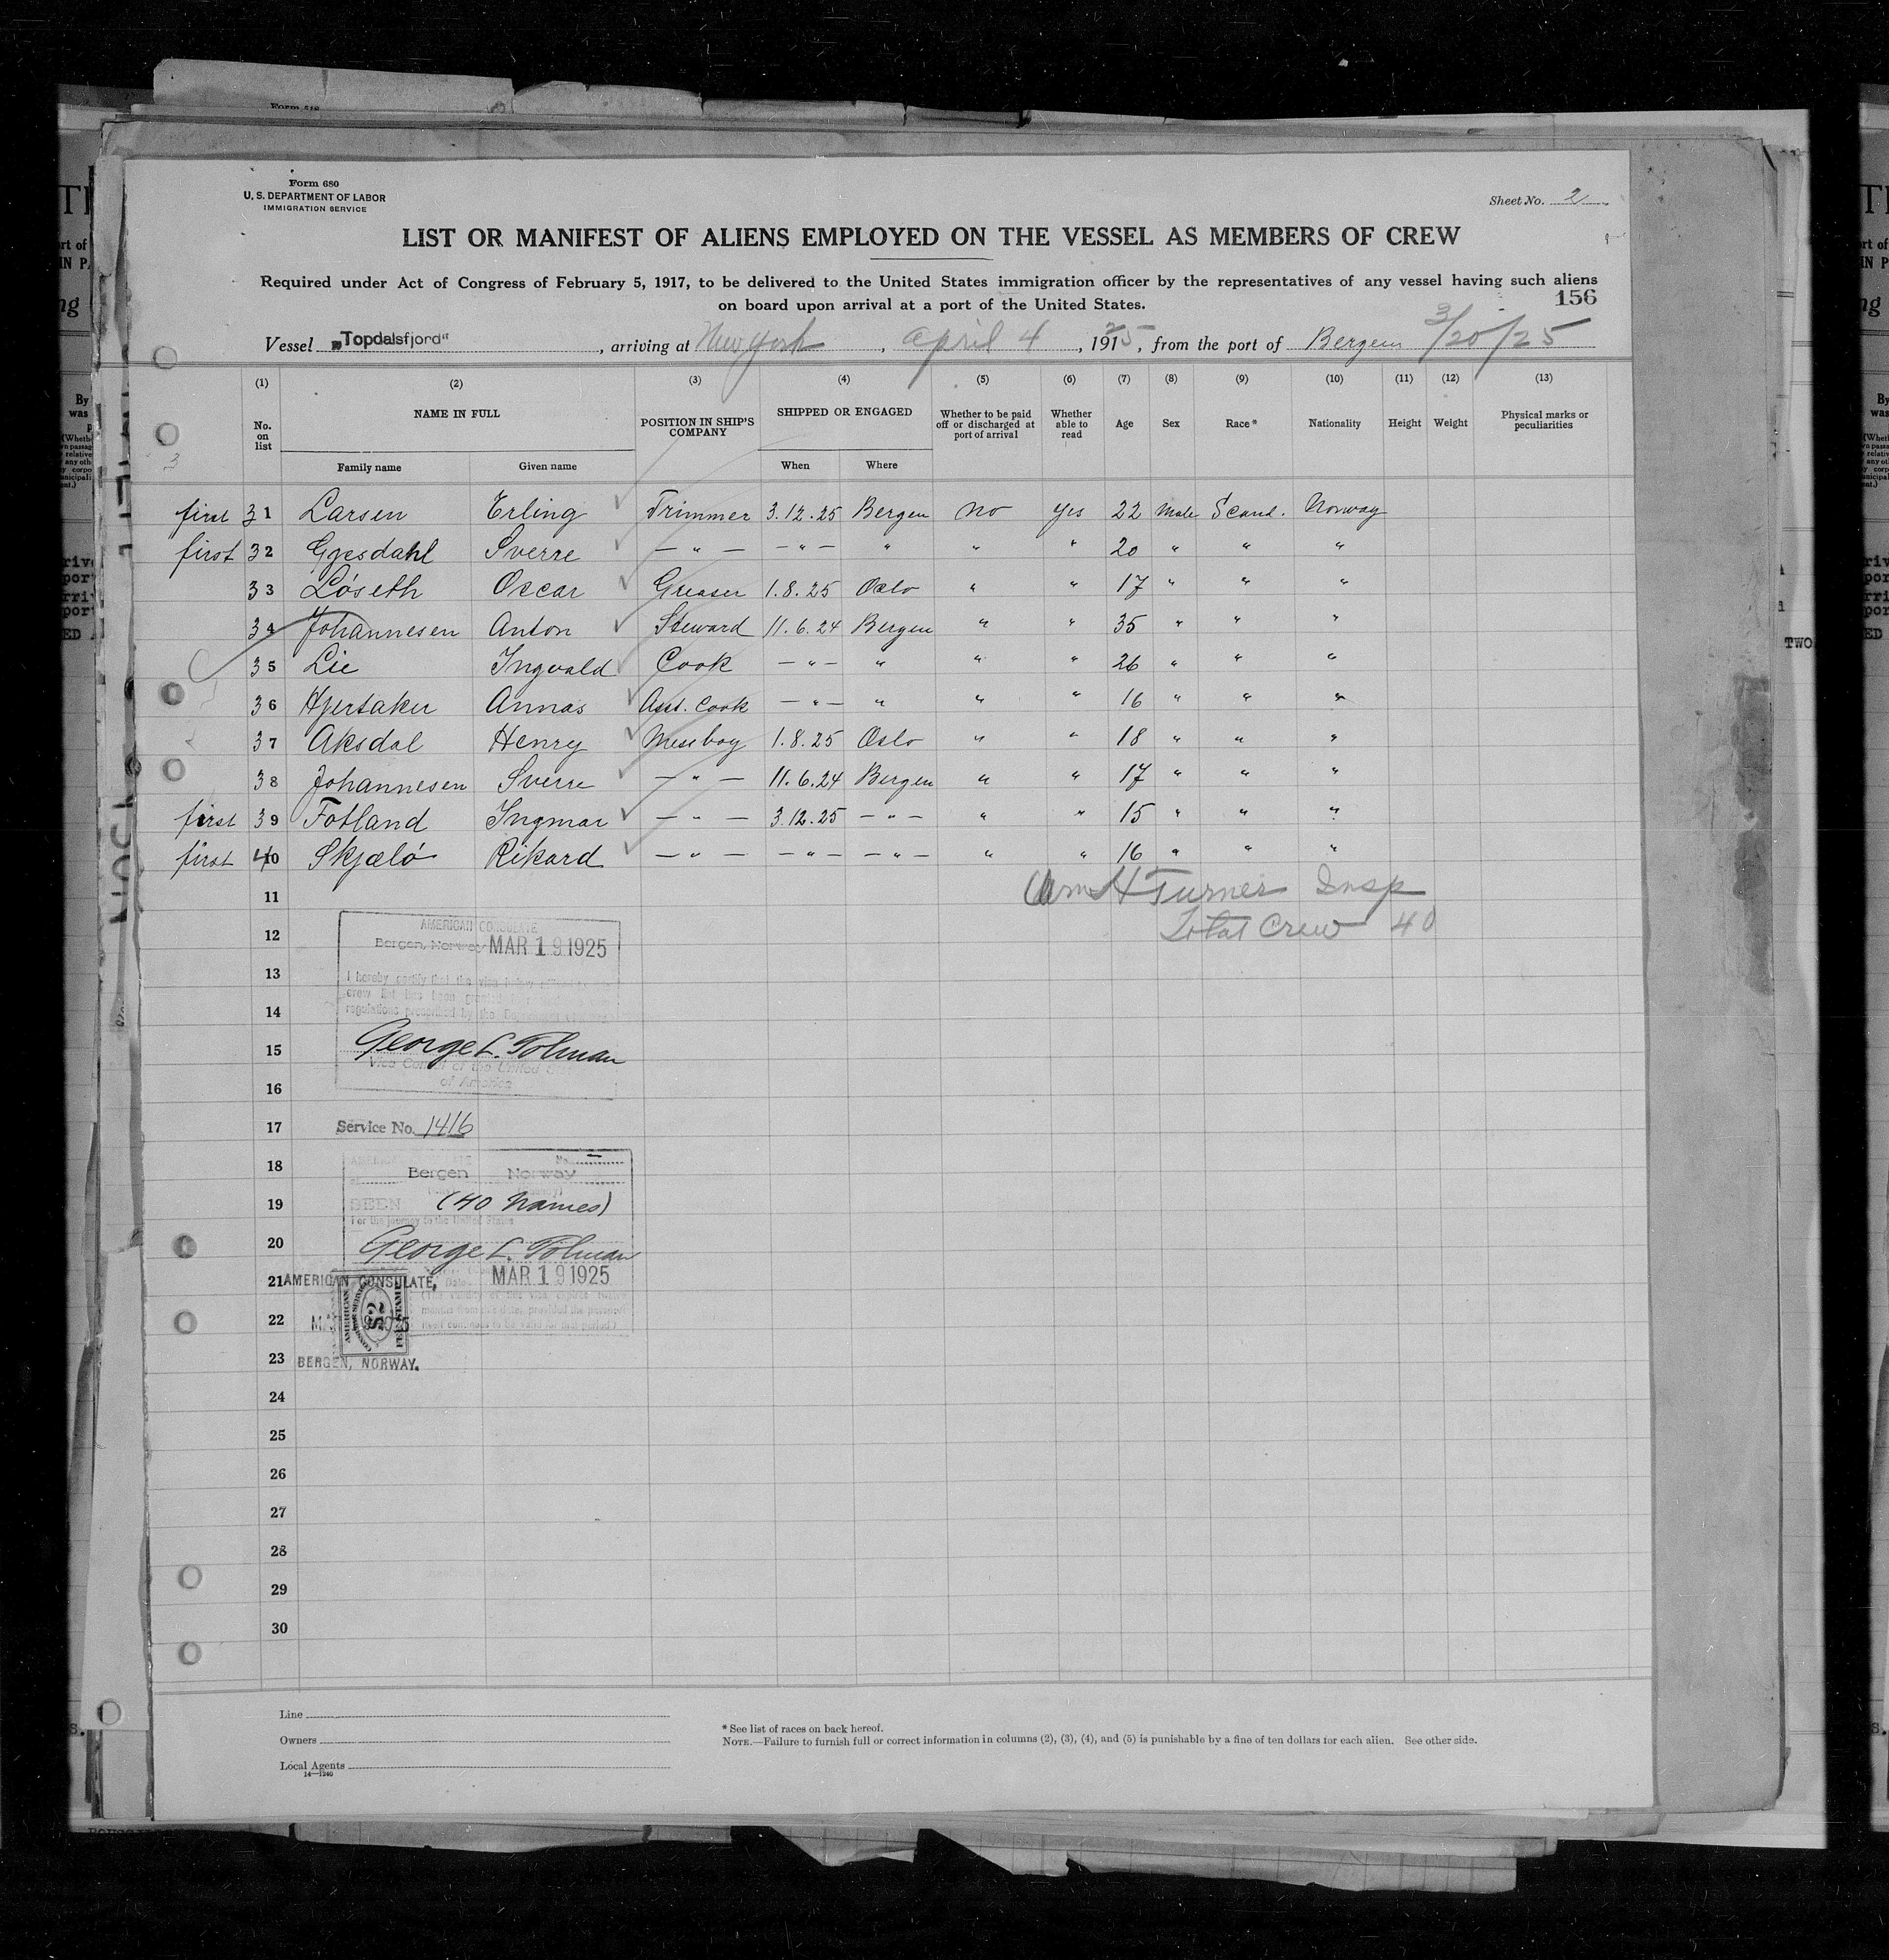 Form 680
U. S. DEPARTMENT OF LABOR
IMMIGRATION SERVICE
Sheet No. 2
LIST OR MANIFEST OF ALIENS EMPLOYED ON THE VESSEL AS MEMBERS OF CREW
Required under Act of Congress of February 5, 1917, to be delivered to the United States immigration officer by the representatives of any vessel having such aliens
on board upon arrival at a port of the United States.
156
Vessel "Topdalsfjord", arriving at New York, April 4, 1925, from the port of Bergen 3/20/25
(1) (2) (3) (4) (5) (6) (7) (8) (9) (10) (11) (12) (13)
No. on list NAME IN FULL POSITION IN SHIP'S COMPANY SHIPPED OR ENGAGED Whether to be paid off or discharged at port of arrival Whether able to read Age Sex Race* Nationality Height Weight Physical marks or peculiarities
Family name Given name When Where
first 31 Larsen Erling Trimmer 3.12.25 Bergen No Yes 22 Male Scand. Norway
first 32 Gjesdahl Sverre — " — — " — " " " 20 " " "
33 Lóseth Oscar Greaser 1.8.25 Oslo " " 17 " " "
34 Johannesen Anton Steward 11.6.24 Bergen " " 35 " " "
35 Lie Ingvald Cook — " — " " " 26 " " "
36 Hjertaker Annas Asst. Cook — " — " " " 16 " " "
37 Aksdal Henry Messboy 1.8.25 Oslo " " 18 " " "
38 Johannesen Sverre — " — 11.6.24 Bergen " " 17 " " "
first 39 Fotland Ingmar — " — 3.12.25 — " — " " 15 " " "
first 40 Skjæló Rikard — " — — " — — " — " " 16 " " "
11 Wm H Turner Insp
12 Total Crew 40
AMERICAN CONSULATE
Bergen, Norway MAR 19 1925
13
I hereby certify that the visa
crew list has been granted
14
regulations prescribed by the Department
15 George L. Tolman
Vice Consul of the United
16 of America
17 Service No. 1416
18 Bergen Norway
No. —
19 SEEN (40 Names)
For the journey to the United States
20 George L. Tolman
21 AMERICAN CONSULATE, Date MAR 19 1925
months from date, provided the passport
22 continues to be valid for that period.)
AMERICAN
$2
FEE STAMP
23 BERGEN, NORWAY.
24
25
26
27
28
29
30
Line
Owners
Local Agents
14—1240
* See list of races on back hereof.
NOTE.—Failure to furnish full or correct information in columns (2), (3), (4), and (5) is punishable by a fine of ten dollars for each alien. See other side.